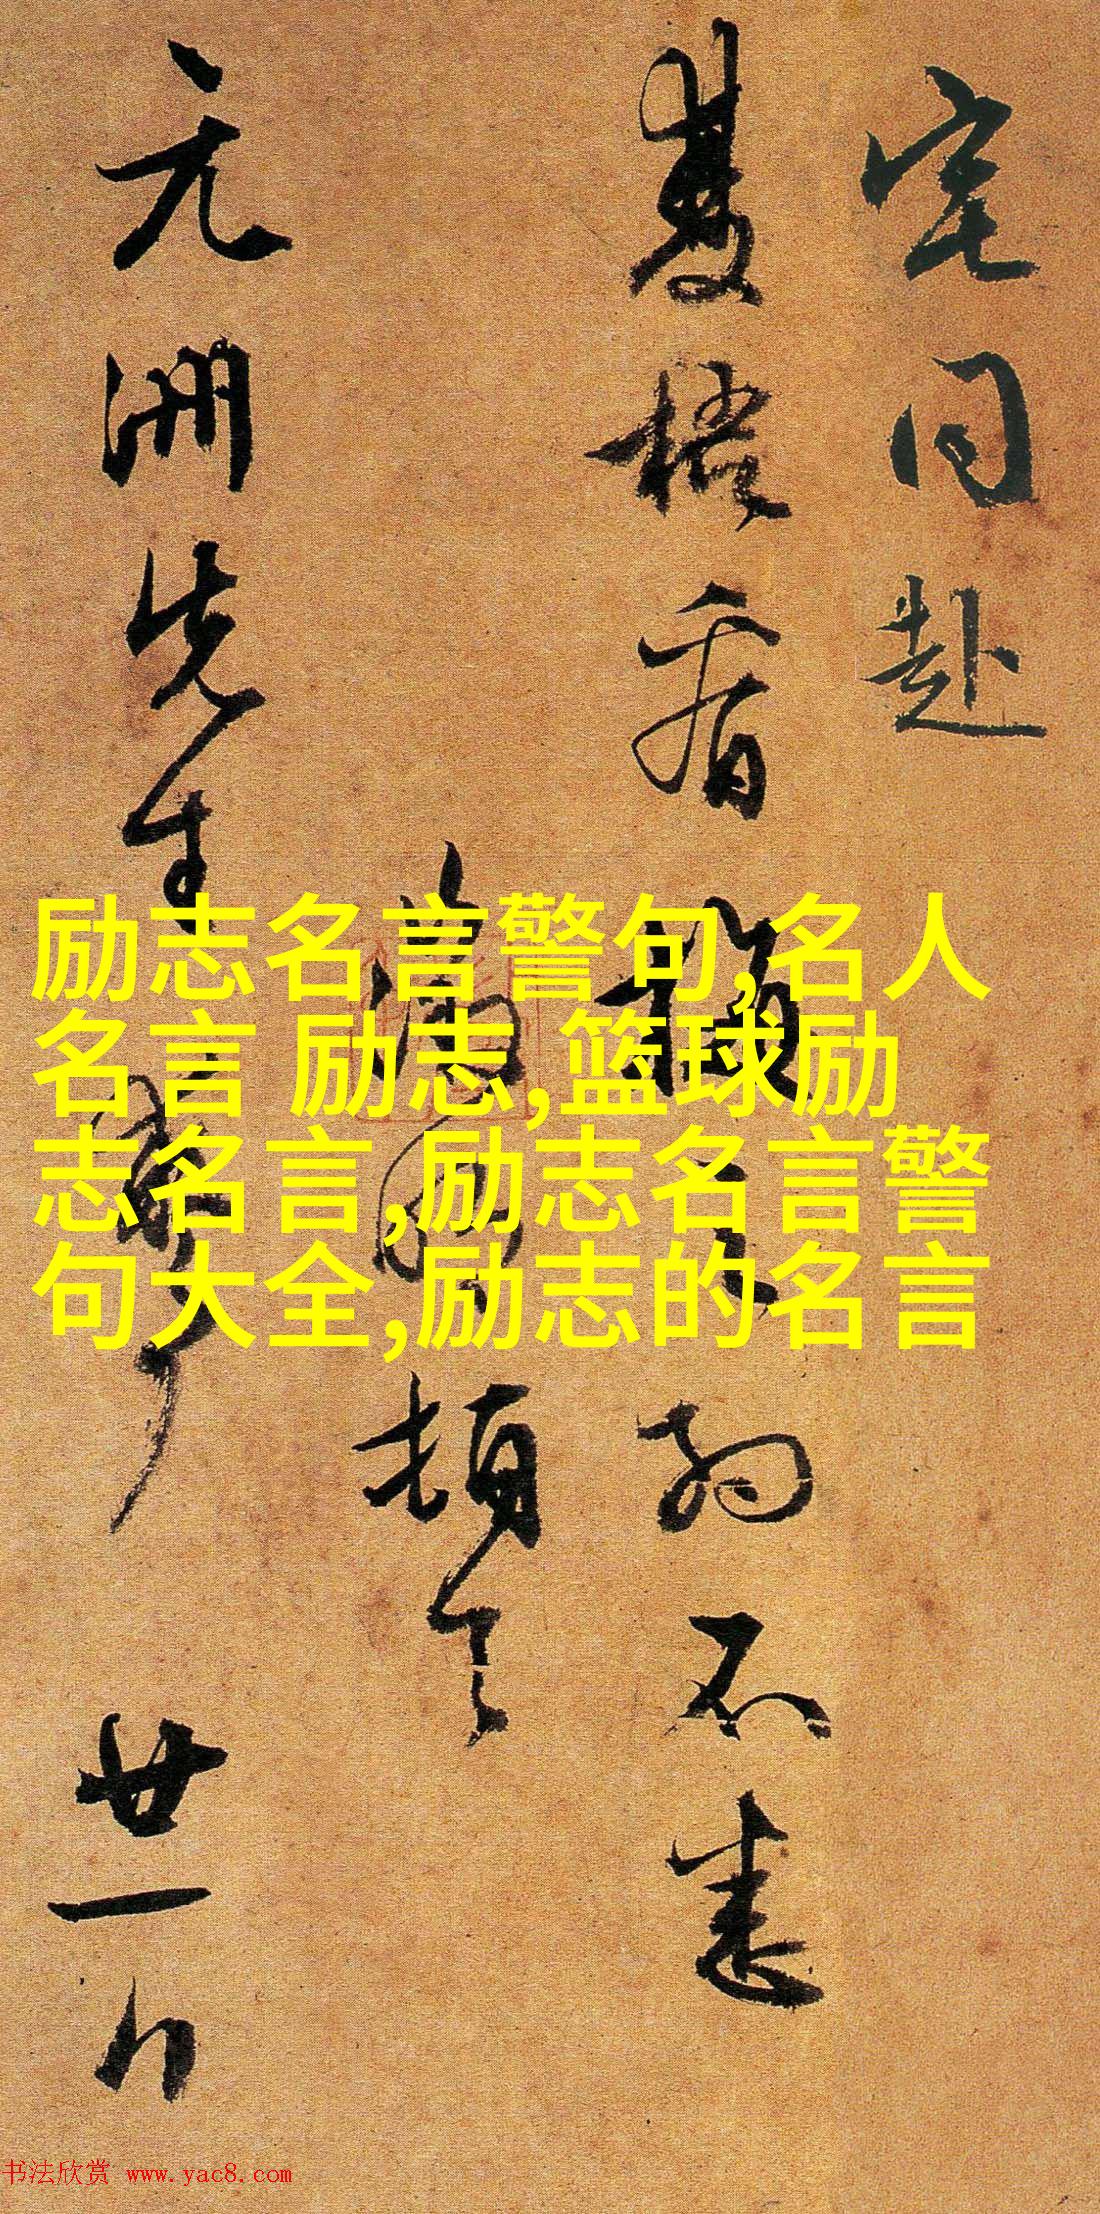 宅同赴
双梧看
不悉
顿首
元洲先生
廿一日
励志名言警句,名人
名言 励志,篮球励
志名言,励志名言警
句大全,励志的名言
书法欣赏 www.yac8.com